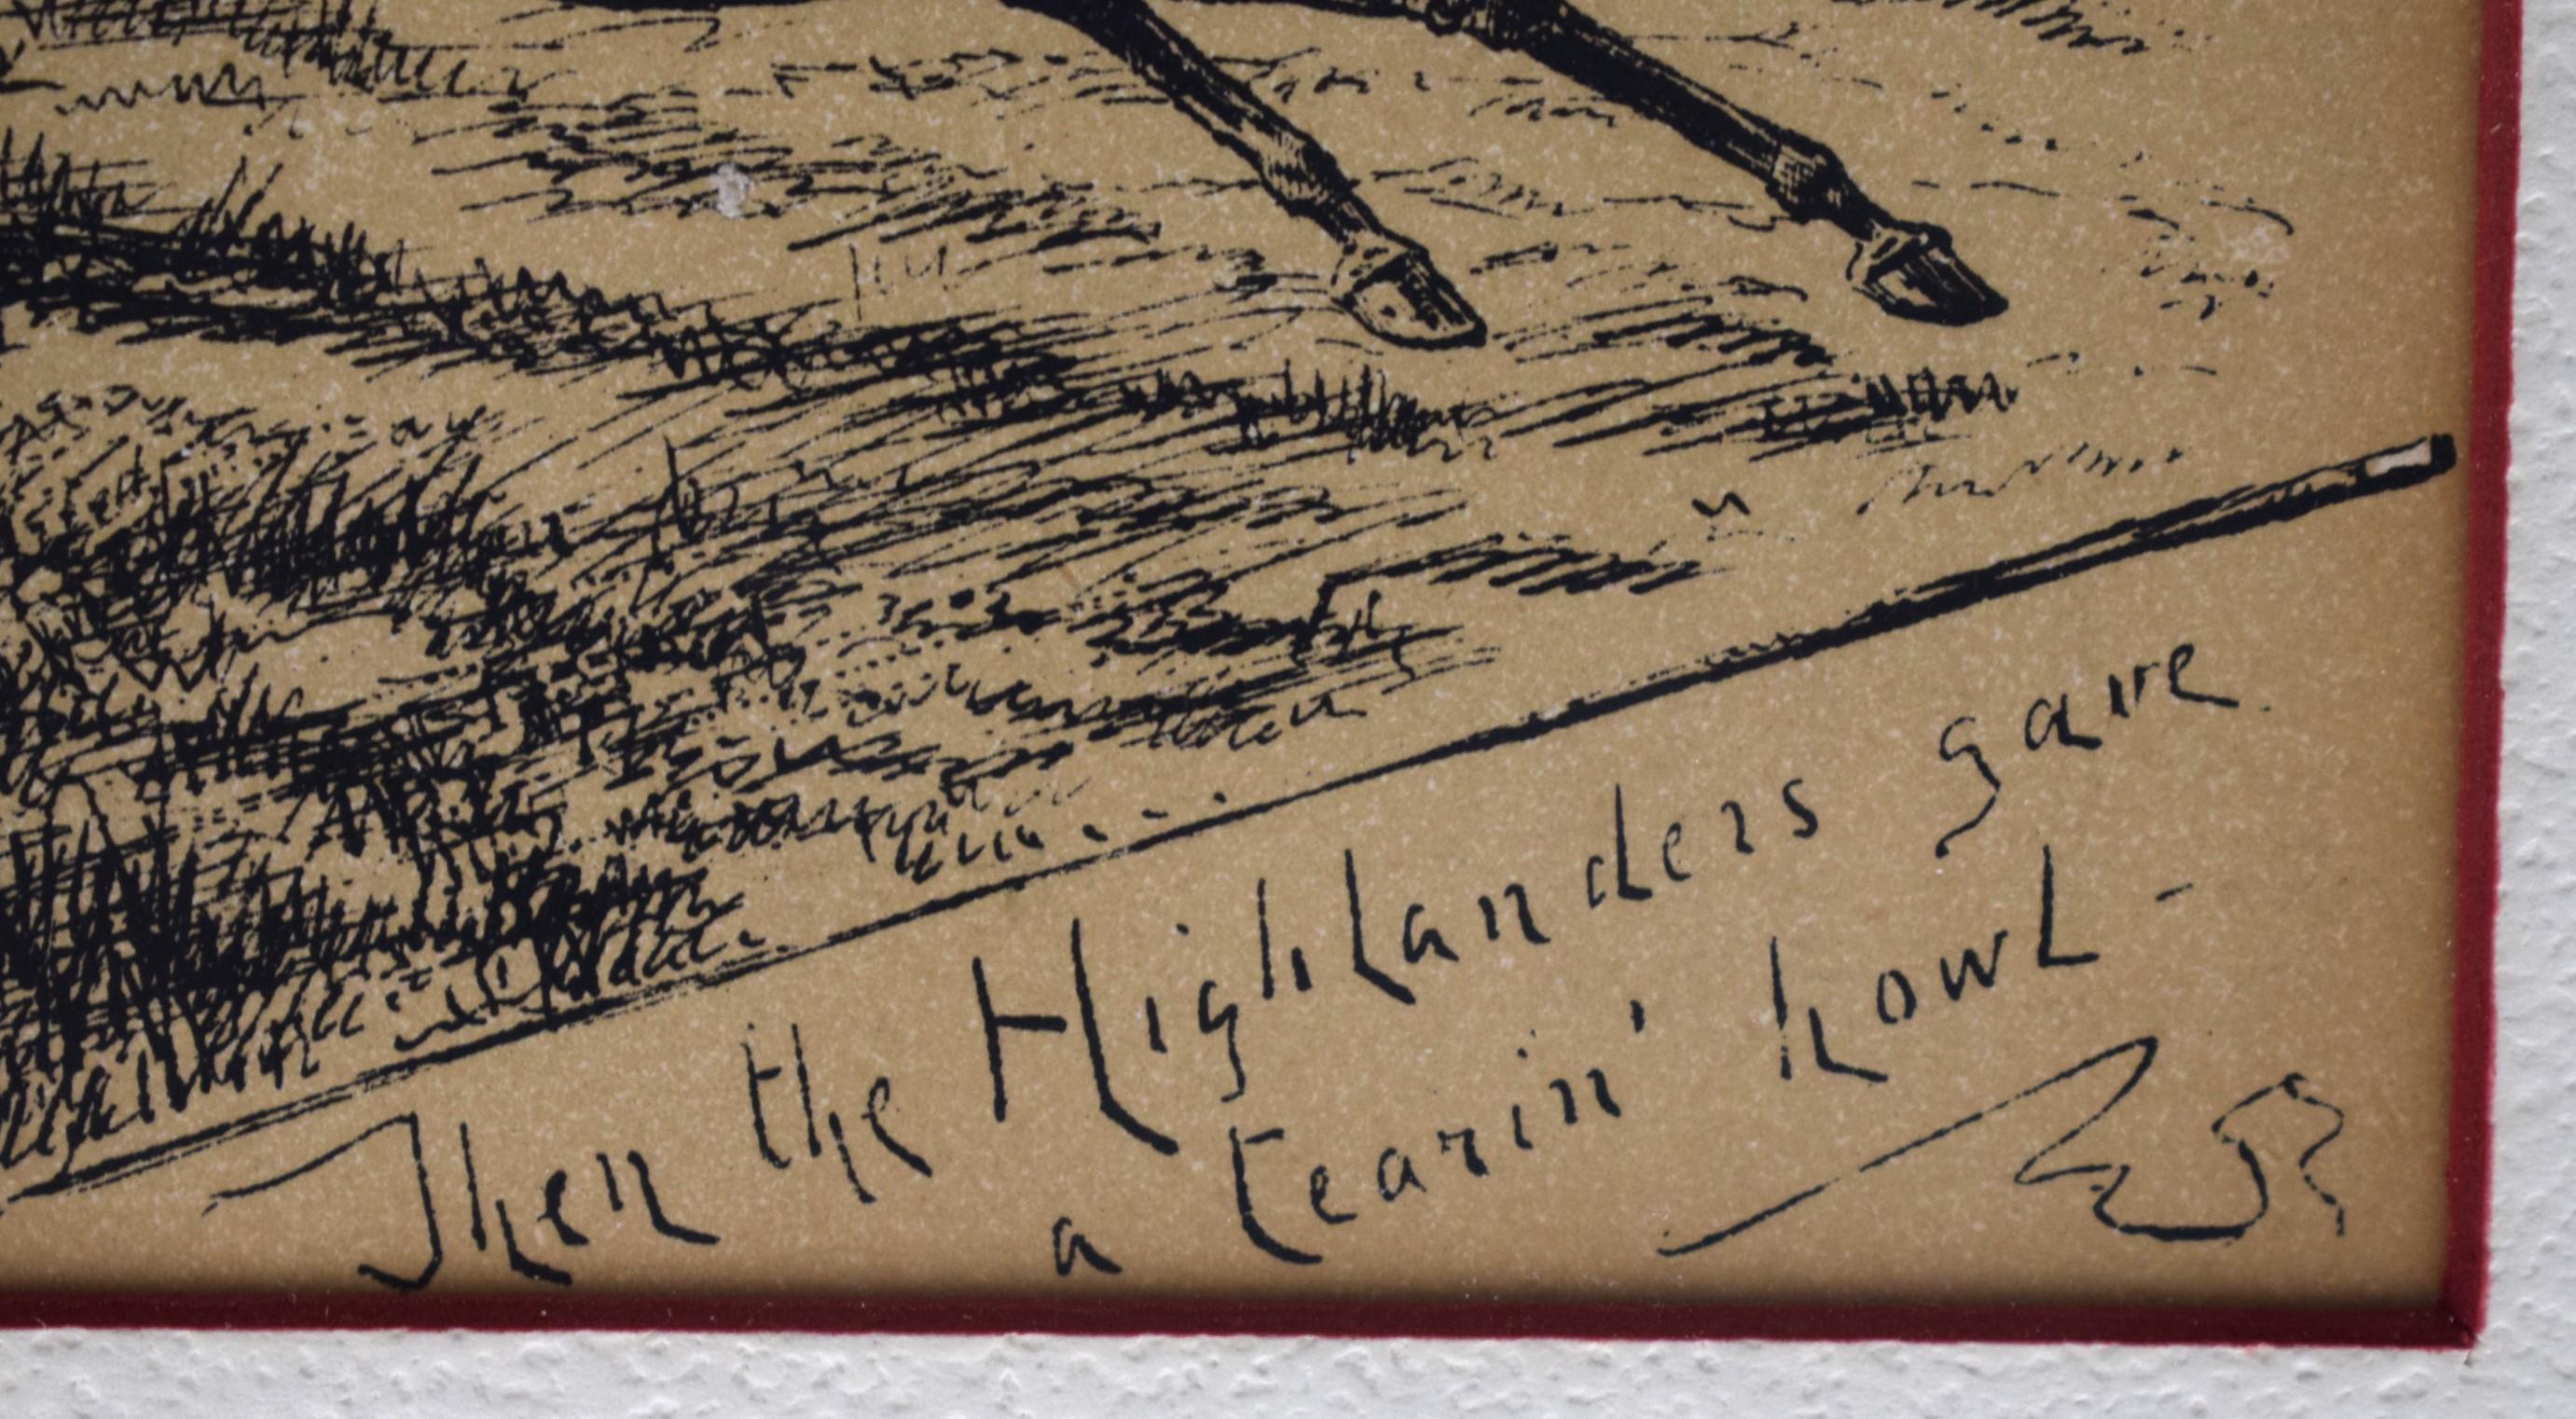 Then the Highlanders gave
a tearin' howl -